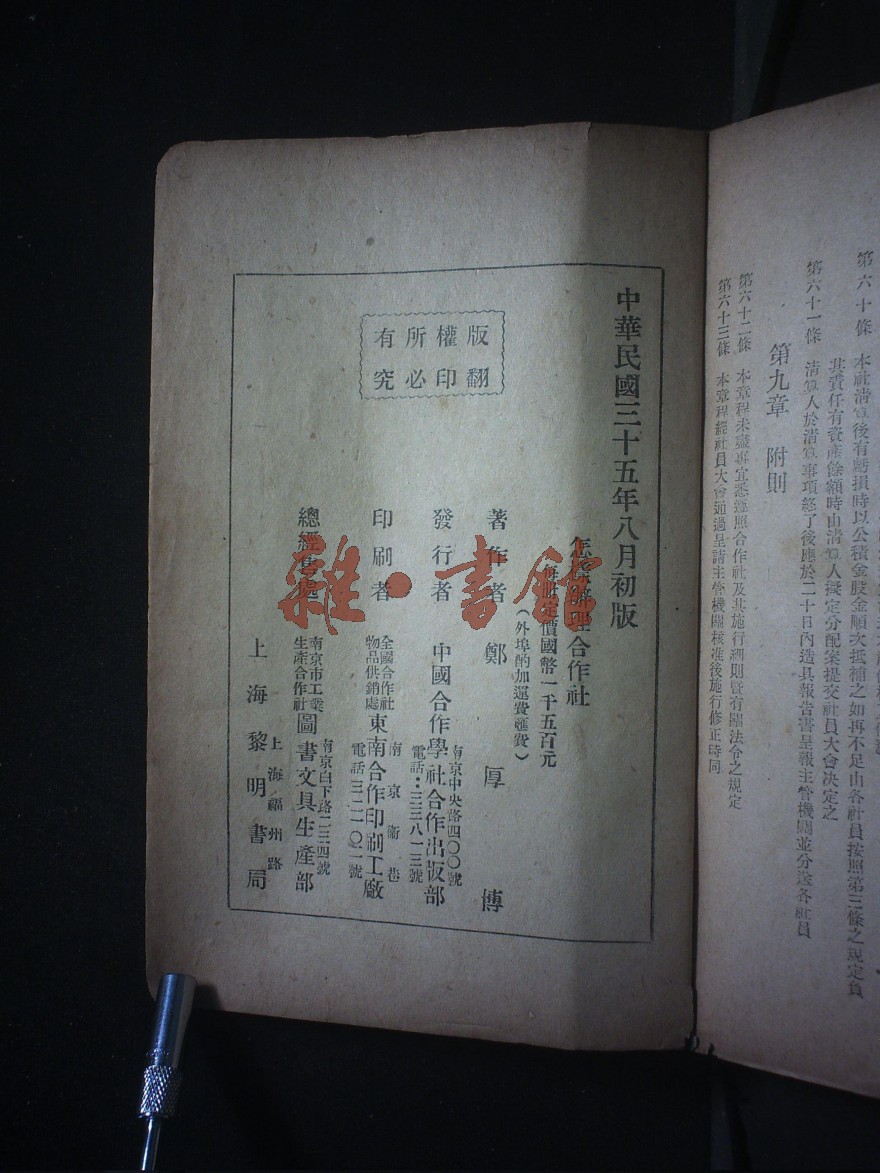 第六十條 本社清算後有虧損時以公積金股金順次抵補之如再不足由各社員按照第三條之規定負
其責任有資產餘額時由清算人擬定分配案提交社員大會決定之
第六十一條 清算人於清算事項終了後應於二十日內造具報告書呈報主管機關並分送各社員
第九章 附則
第六十二條 本章程未盡事宜悉遵照合作社及其施行細則暨有關法令之規定
第六十三條 本章程經社員大會通過呈請主管機關核准後施行修正時同
中華民國三十五年八月初版
怎樣辦理合作社
每冊定價國幣一千五百元
(外埠酌加運費匯費)
版權所有
翻印必究
著作者 鄭厚博
發行者 中國合作學社合作出版部
南京中央路四〇〇號
電話:三三八一三號
印刷者 全國合作社物品供銷處 東南合作印刷工廠
南京衛巷
電話三二一〇一號
總經售處 南京市工業生產合作社 圖書文具生產部
南京白下路二三四號
上海黎明書局
上海福州路
雜·書館